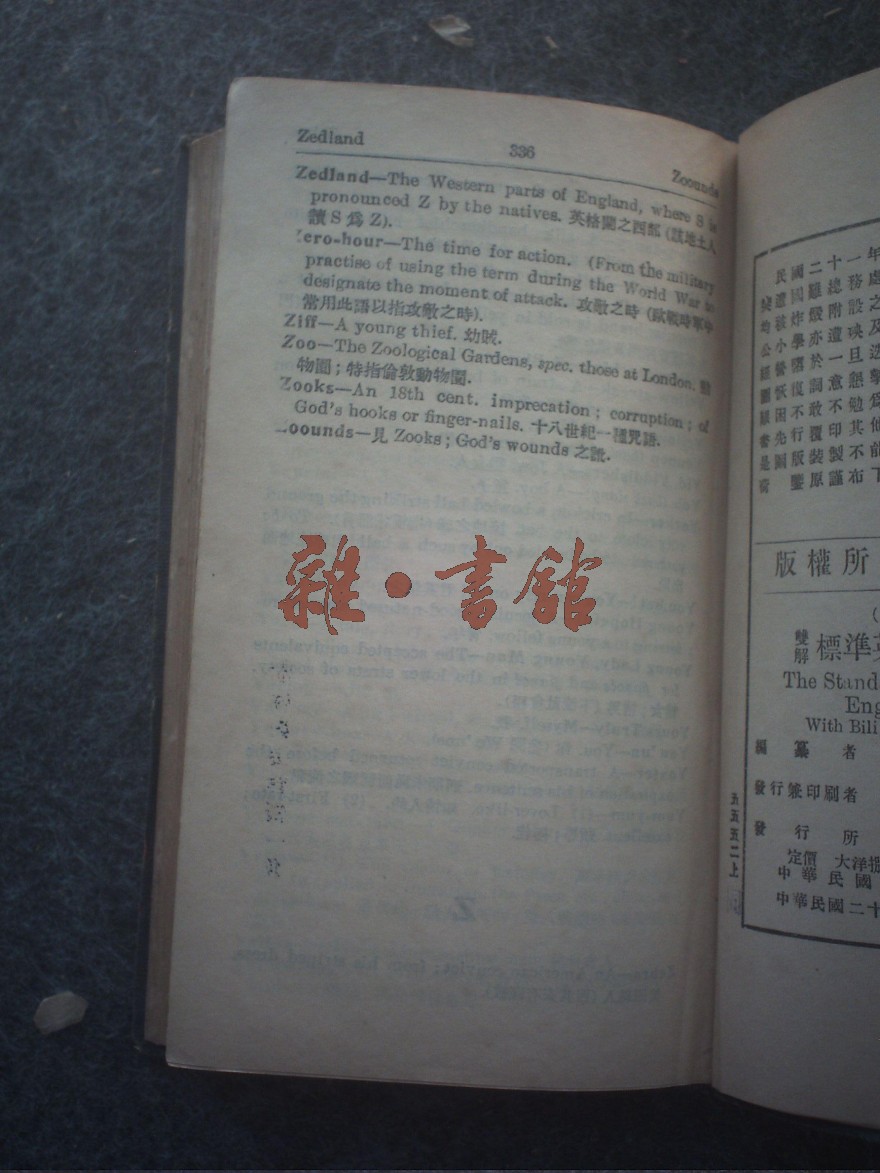 Zedland
336
Zoounds
Zedland—The Western parts of England, where S is
pronounced Z by the natives. 英格蘭之西部 (該地土人
讀 S 爲 Z).
Zero-hour—The time for action. (From the military
practise of using the term during the World War to
designate the moment of attack. 攻敵之時 (歐戰時軍中
常用此語以指攻敵之時).
Ziff—A young thief. 幼賊.
Zoo—The Zoological Gardens, spec. those at London. 動
物園；特指倫敦動物園.
Zooks—An 18th cent. imprecation; corruption; of
God's hooks or finger-nails. 十八世紀一種咒語.
Zoounds—見 Zooks; God's wounds 之訛.
雜·書館
民國二十一年
突遭國難總務處
均被炸燬附設之
公小學亦遭殃及
盡於一旦迭
恢復詞意懇摯
困不敢不勉爲
先行覆印其他
是圖版裝製不前
鑒原謹布下
版權所
雙解 標準英
The Stand
Eng
With Bili
編纂者
發行兼印刷者
發行所
定價 大洋
中華民國
中華民國二十
五五五二上